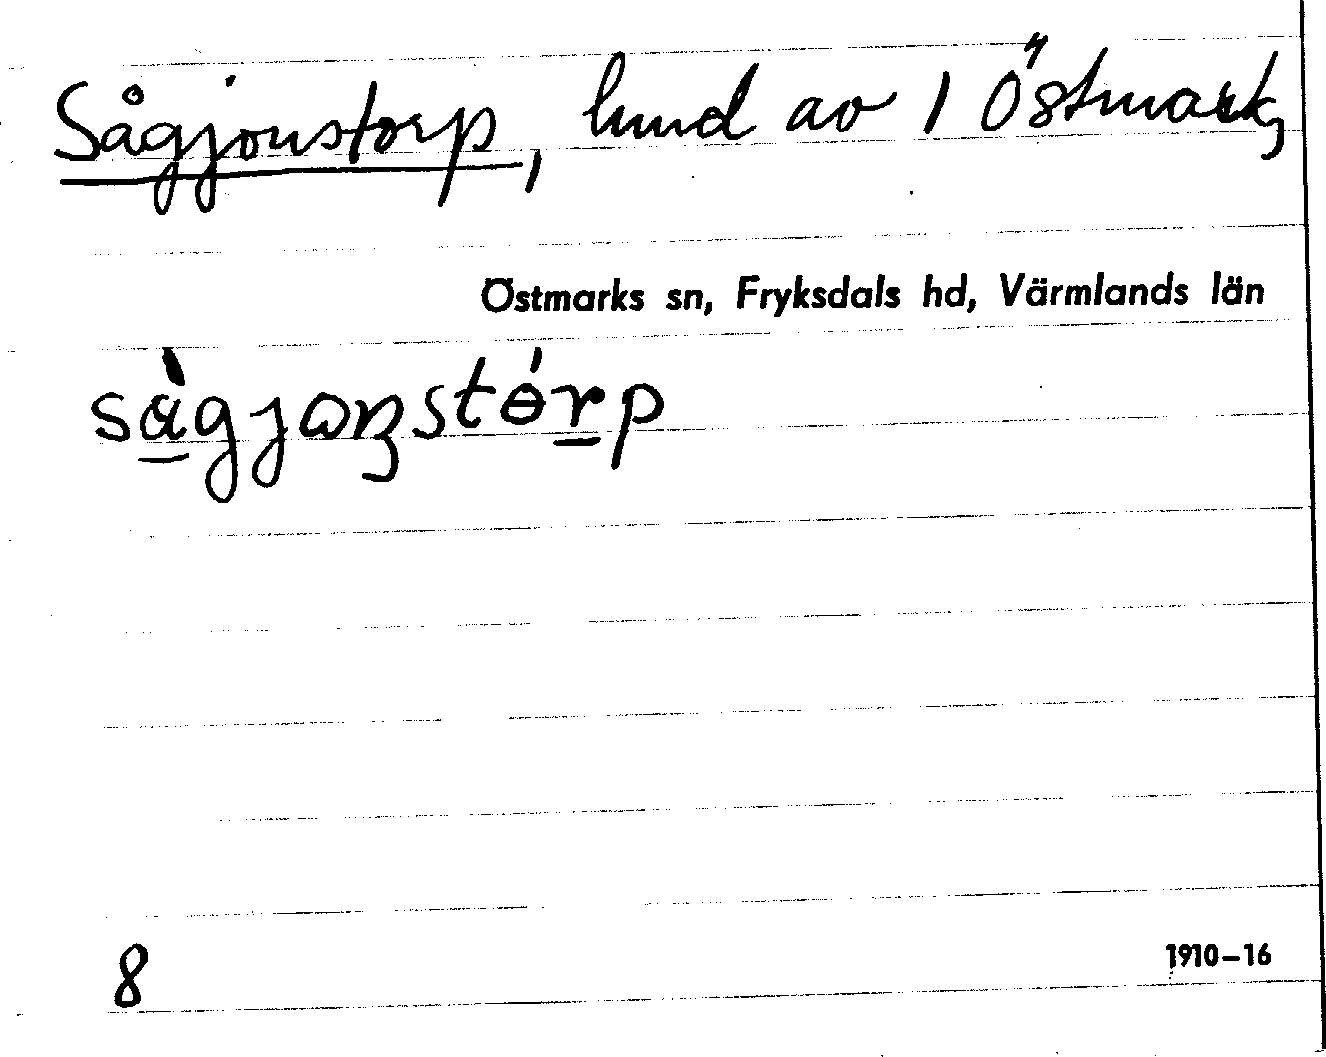 Sågjonstorp, hmd av 1 Östmark,
Östmarks sn, Fryksdals hd, Värmlands län
8
1910–16